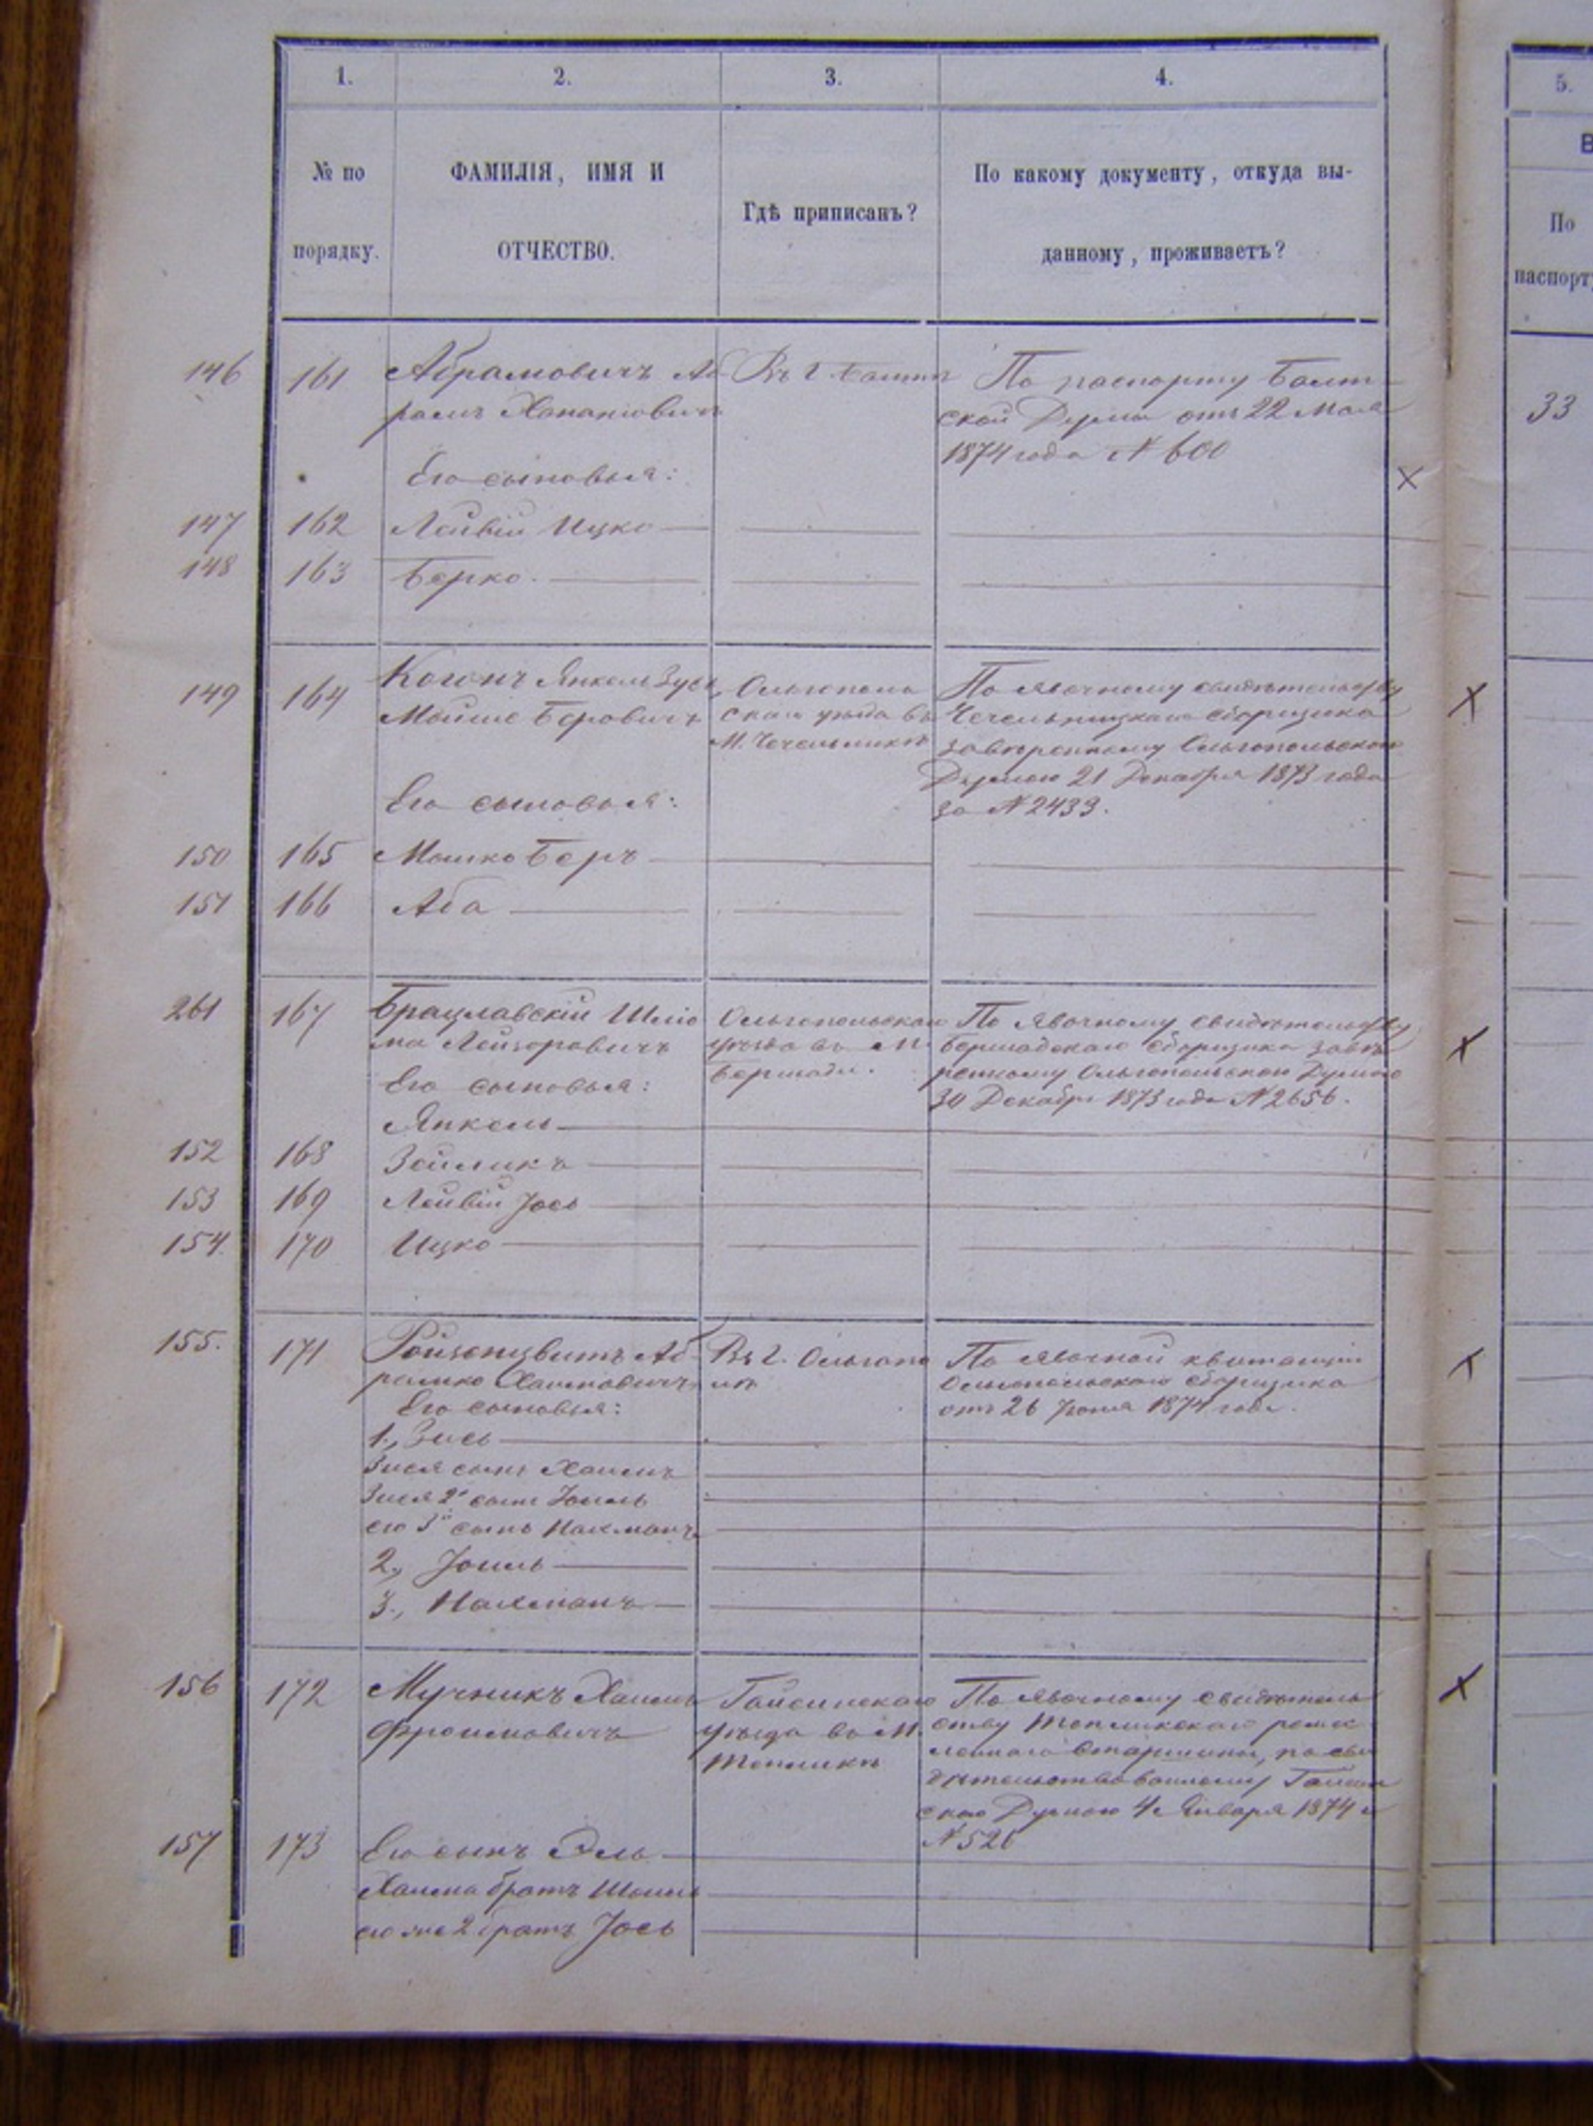 1. 2. 3. 4. 5.
№ по ФАМИЛІЯ, ИМЯ И Гдѣ приписанъ? По какому документу, откуда вы- По
порядку. ОТЧЕСТВО. данному, проживаетъ? паспорт
146 161 Абрамовичъ Аб- Въ г. Балтѣ По паспорту Балт-
рамъ Ханановичъ ской Думы отъ 22 Мая 33
1874 года № 600
Его сыновья:
147 162 Лейвій Ицко
148 163 Берко.
149 164 Когонъ Янкель Зусь Ольгополь По явочному свидѣтельству
Мойше Беровичъ скаго уѣзда въ Чечельницкаго сборщика
М. Чечельникѣ завѣренному Ольгопольскою
Думою 21 Декабря 1873 года
Его сыновья: за № 2433.
150 165 Мошко Беръ
151 166 Аба
261 167 Брацлавскій Шліо Ольгопольскаго По явочному свидѣтельству
ма Лейзоровичъ уѣзда въ М. Бершадскаго сборщика завѣ
Его сыновья: Бершади. ренному Ольгопольскою Думою
Янкель 30 Декабря 1873 года № 2656.
152 168 Зейликъ
153 169 Лейвій Іось
154. 170 Ицко
155. 171 Ройзенцвитъ Аб- Въ г. Ольгопо По явочной квитанціи
рамко Хаимовичъ лѣ Ольгопольскаго сборщика
Его сыновья: отъ 26 Іюня 1874 года.
1., Зись
Зися сынъ Хаимъ
Зися 2й сынъ Іоиль
его 3й сынъ Нахманъ
2., Іоиль
3., Нахманъ
156 172 Мучникъ Хаимъ Гайсинскаго По явочному свидѣтель
Фроимовичъ уѣзда въ М. ству Тепликскаго ремес
Тепликѣ леннаго старшины, по сви
дѣтельствованному Гайсин
скою Думою 4 Января 1874 г
157 173 Его сынъ Эль № 526
Хаима братъ Шоиль
его же 2 братъ Іось